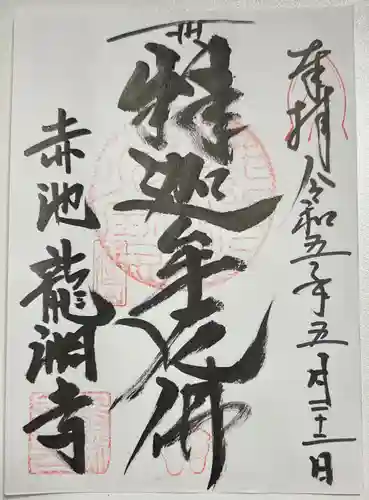 奉拝 令和五年五月二十二日
釈迦牟尼佛
赤池 龍淵寺